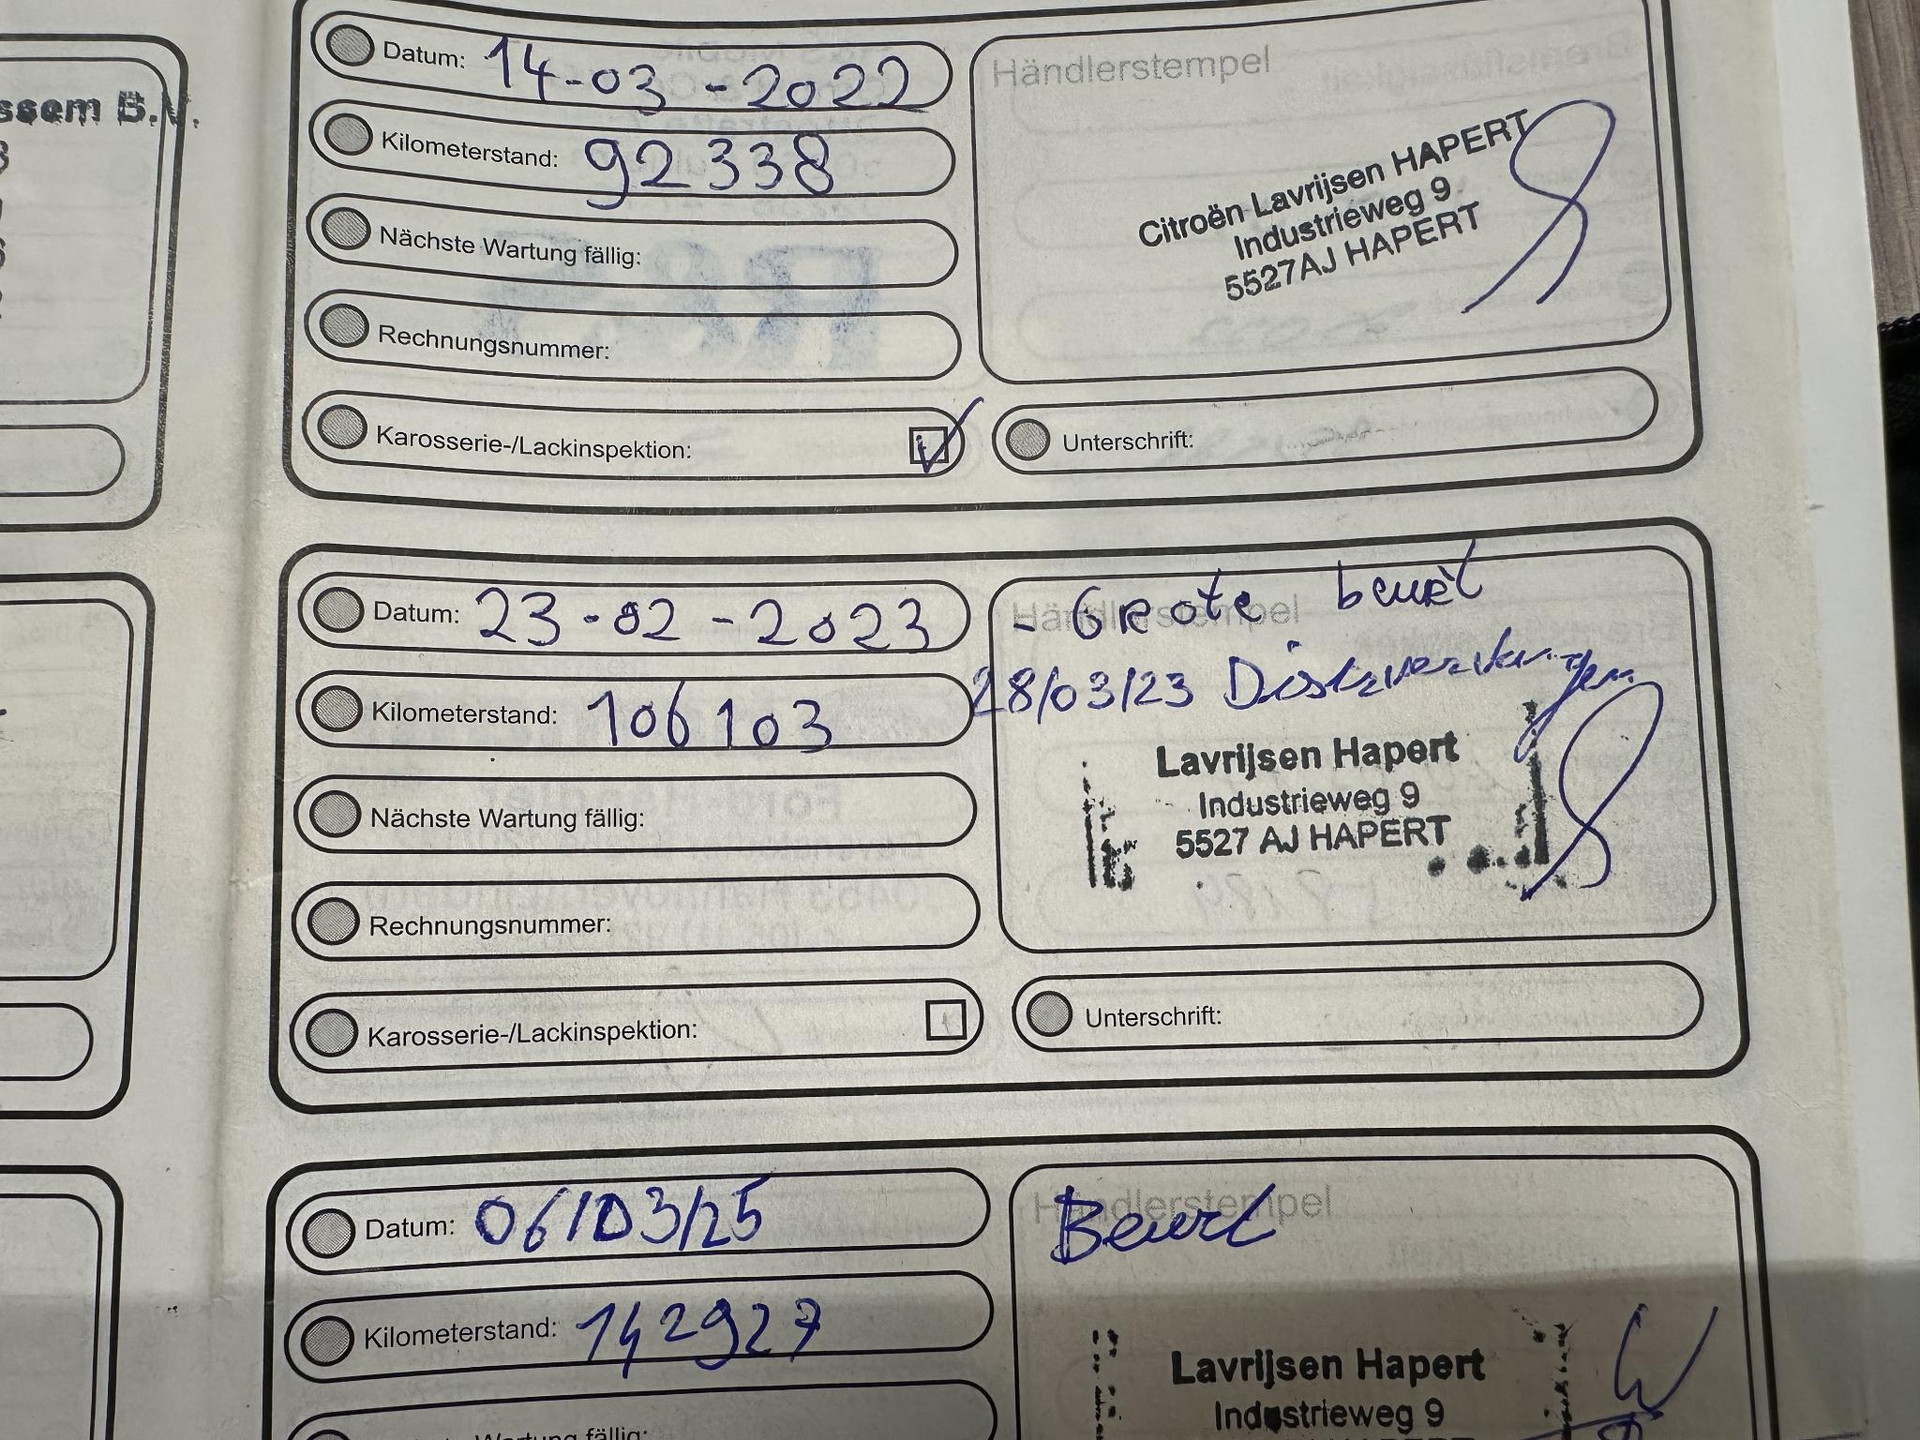 ssem B.V.
Datum: 14-03-2022
Kilometerstand: 92338
Nächste Wartung fällig:
Rechnungsnummer:
Karosserie-/Lackinspektion:
Händlerstempel
Citroën Lavrijsen HAPERT
Industrieweg 9
5527AJ HAPERT
Unterschrift:
Datum: 23-02-2023
Kilometerstand: 106103
Nächste Wartung fällig:
Rechnungsnummer:
Karosserie-/Lackinspektion:
Händlerstempel
- Grote beurt
28/03/23
Lavrijsen Hapert
Industrieweg 9
5527 AJ HAPERT
Unterschrift:
Datum: 06/03/25
Kilometerstand: 142927
Wartung fällig:
Händlerstempel
Beurt
Lavrijsen Hapert
Industrieweg 9